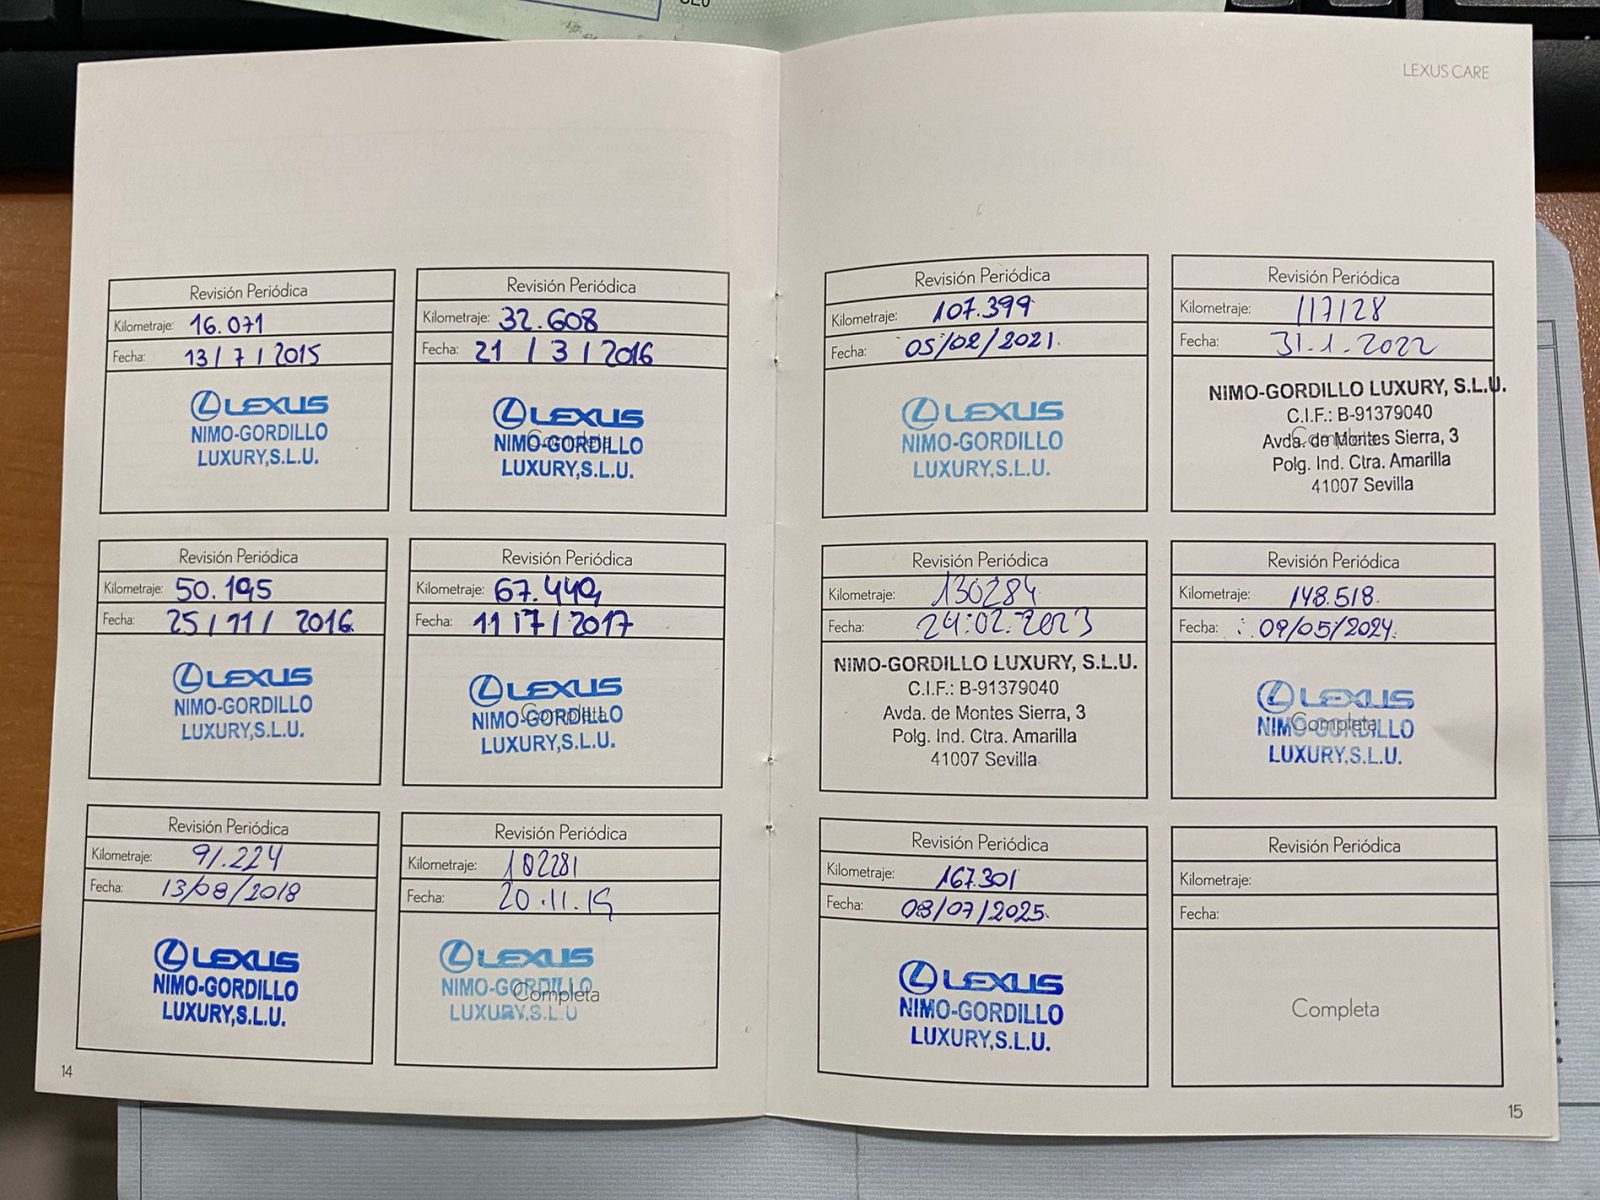 LEXUS CARE
Revisión Periódica
Kilometraje: 16.071
Fecha: 13/7/2015
LEXUS
NIMO-GORDILLO
LUXURY,S.L.U.
Revisión Periódica
Kilometraje: 32.608
Fecha: 21/3/2016
LEXUS
Completa
NIMO-GORDILLO
LUXURY,S.L.U.
Revisión Periódica
Kilometraje: 50.195
Fecha: 25/11/2016
LEXUS
NIMO-GORDILLO
LUXURY,S.L.U.
Revisión Periódica
Kilometraje: 67.449
Fecha: 11/7/2017
LEXUS
Completa
NIMO-GORDILLO
LUXURY,S.L.U.
Revisión Periódica
Kilometraje: 91.224
Fecha: 13/08/2018
LEXUS
NIMO-GORDILLO
LUXURY,S.L.U.
Revisión Periódica
Kilometraje: 102281
Fecha: 20.11.19
LEXUS
NIMO-GORDILLO
Completa
LUXURY,S.L.U
14
Revisión Periódica
Kilometraje: 107.399
Fecha: 05/02/2021.
LEXUS
NIMO-GORDILLO
LUXURY,S.L.U.
Revisión Periódica
Kilometraje: 117128
Fecha: 31.1.2022
NIMO-GORDILLO LUXURY, S.L.U.
C.I.F.: B-91379040
Completa
Avda. de Montes Sierra, 3
Polg. Ind. Ctra. Amarilla
41007 Sevilla
Revisión Periódica
Kilometraje: 130284
Fecha: 24.02.2023
NIMO-GORDILLO LUXURY, S.L.U.
C.I.F.: B-91379040
Avda. de Montes Sierra, 3
Polg. Ind. Ctra. Amarilla
41007 Sevilla
Revisión Periódica
Kilometraje: 148.518.
Fecha: 09/05/2024.
LEXUS
Completa
NIMO-GORDILLO
LUXURY,S.L.U.
Revisión Periódica
Kilometraje: 167.301
Fecha: 08/07/2025.
LEXUS
NIMO-GORDILLO
LUXURY,S.L.U.
Revisión Periódica
Kilometraje:
Fecha:
Completa
15